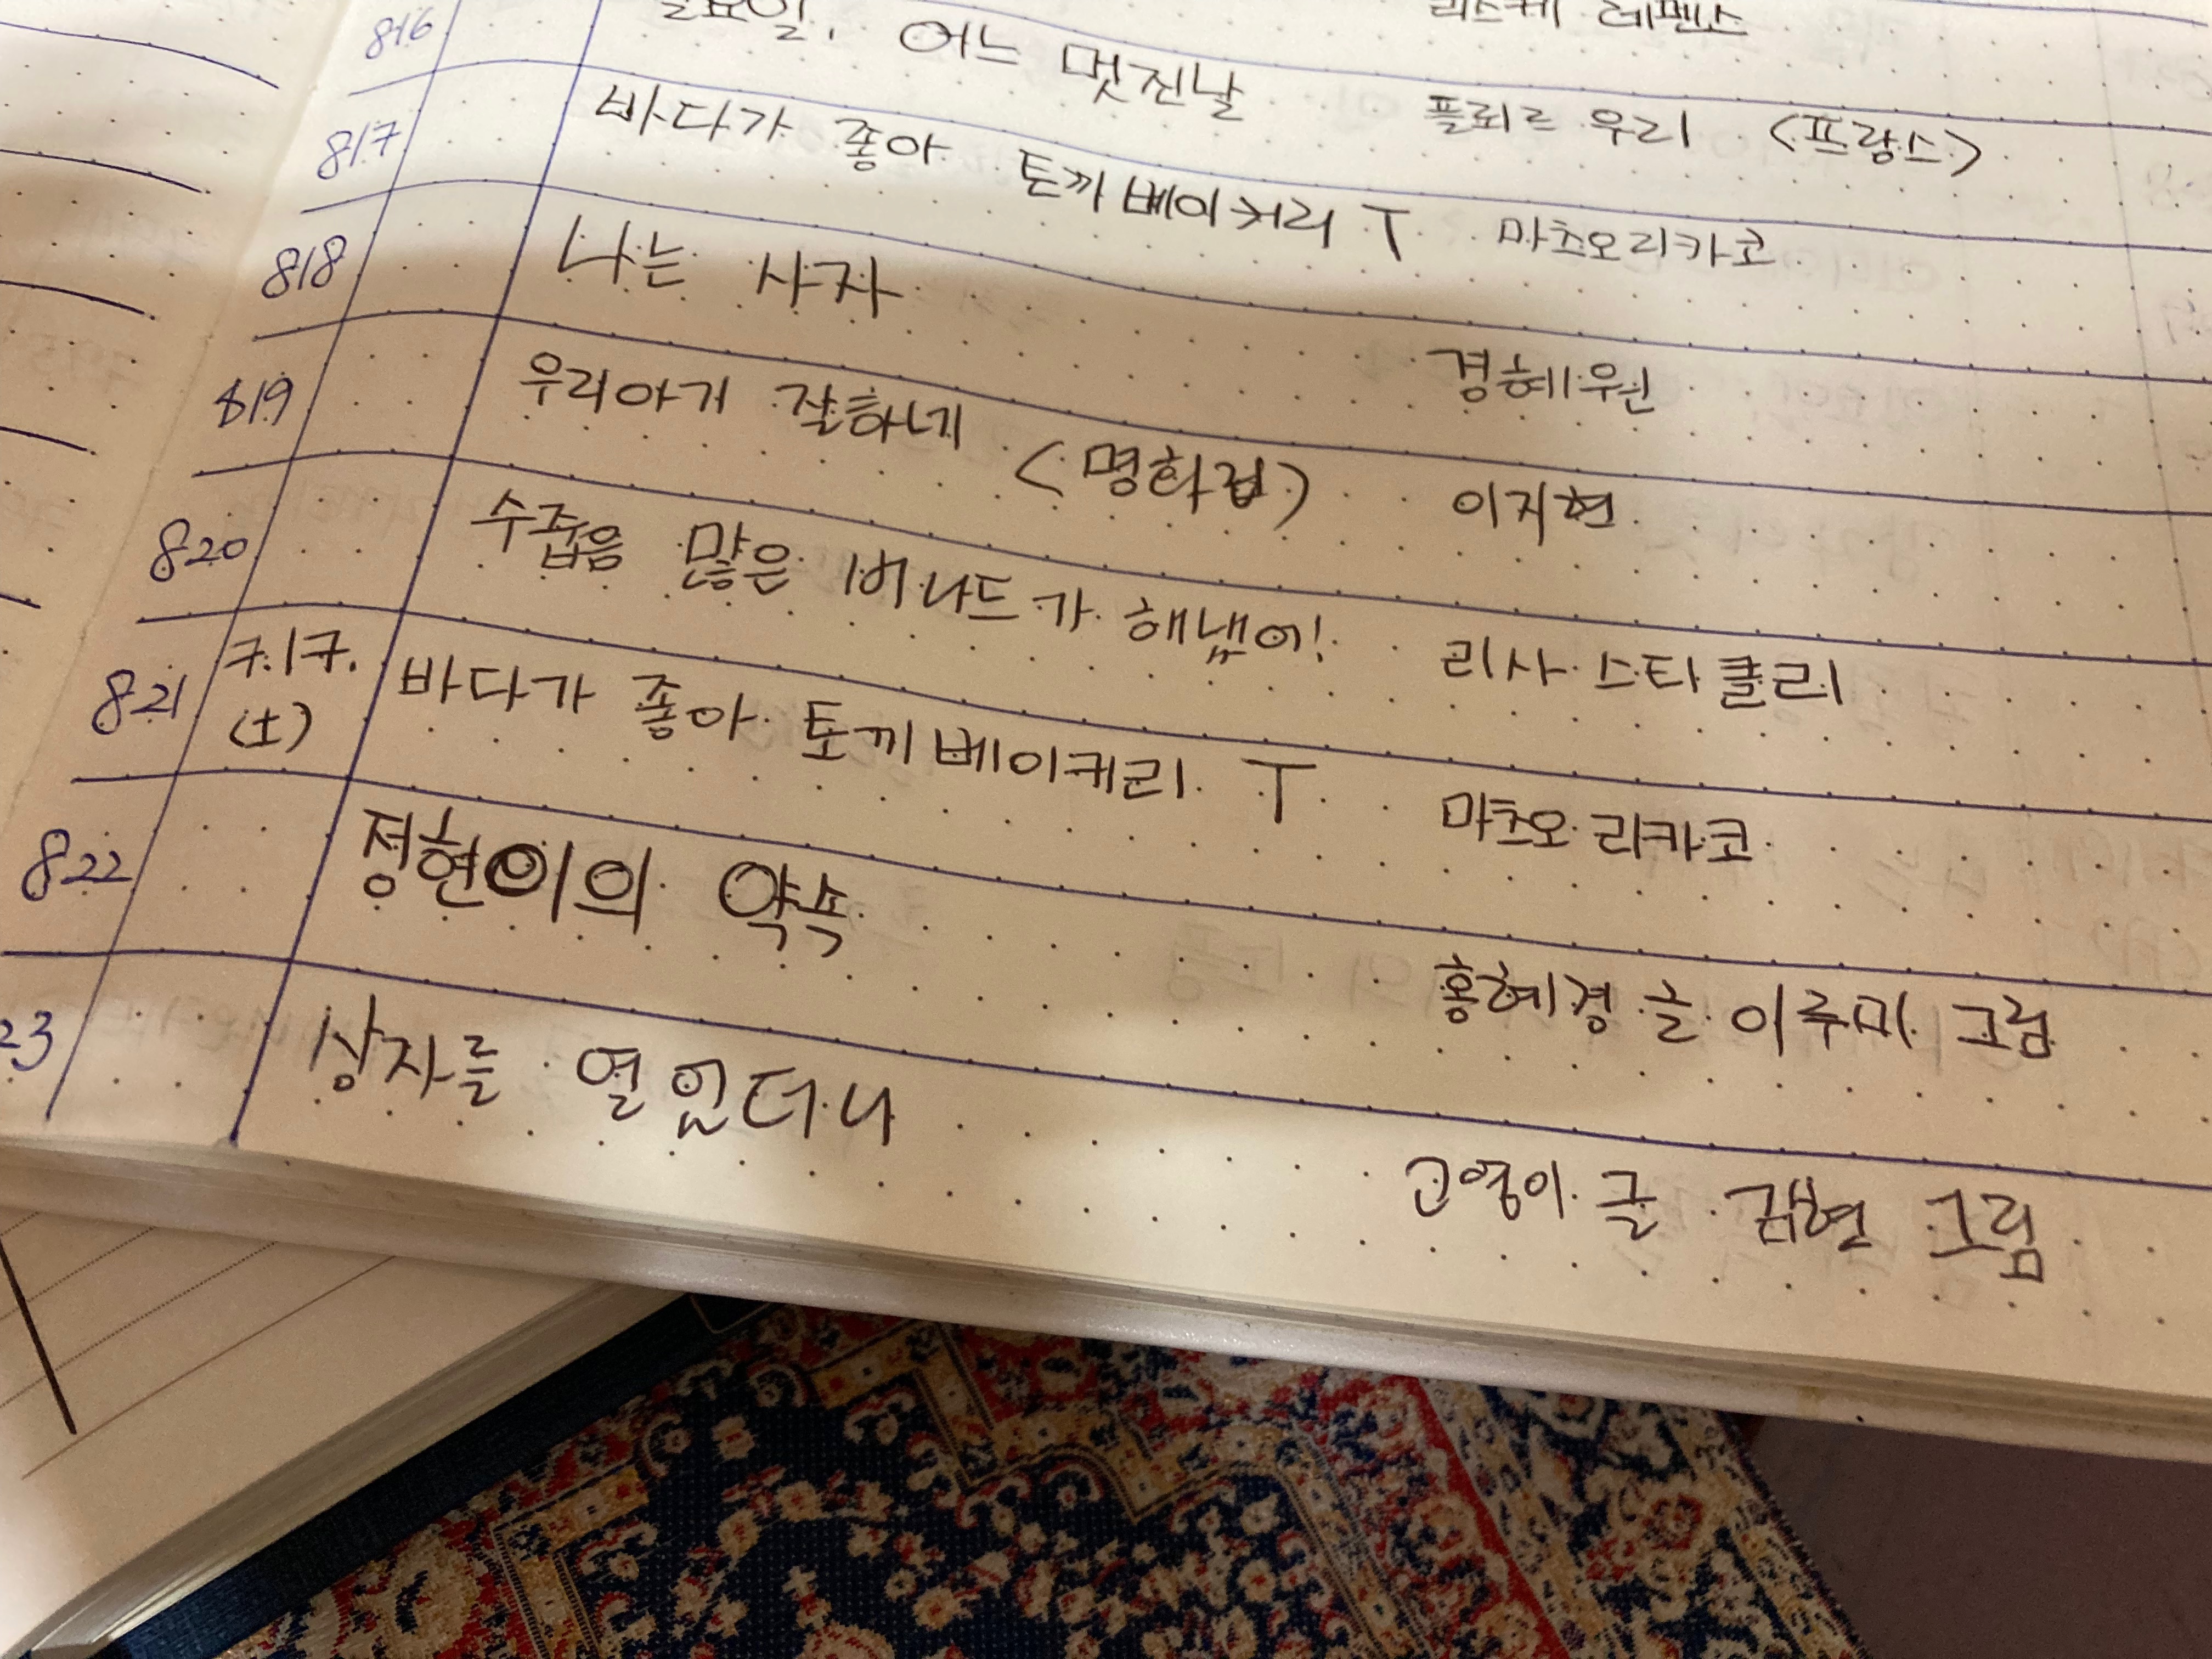 816 어느 멋진날 플뢰르 우리 <프랑스>
817 바다가 좋아 토끼 베이커리 T 마츠오리카코
818 나는 사자 경혜원
819 우리아기 잘하네 <명화첩> 이지현
820 수줍음 많은 버나드가 해냈어! 리사 스티클리
821 7.17. (土) 바다가 좋아 토끼 베이커리 T 마츠오 리카코
822 정현이의 약속 홍혜경 글 이루미 그림
23 상자를 열었더니 고영이 글 김현 그림